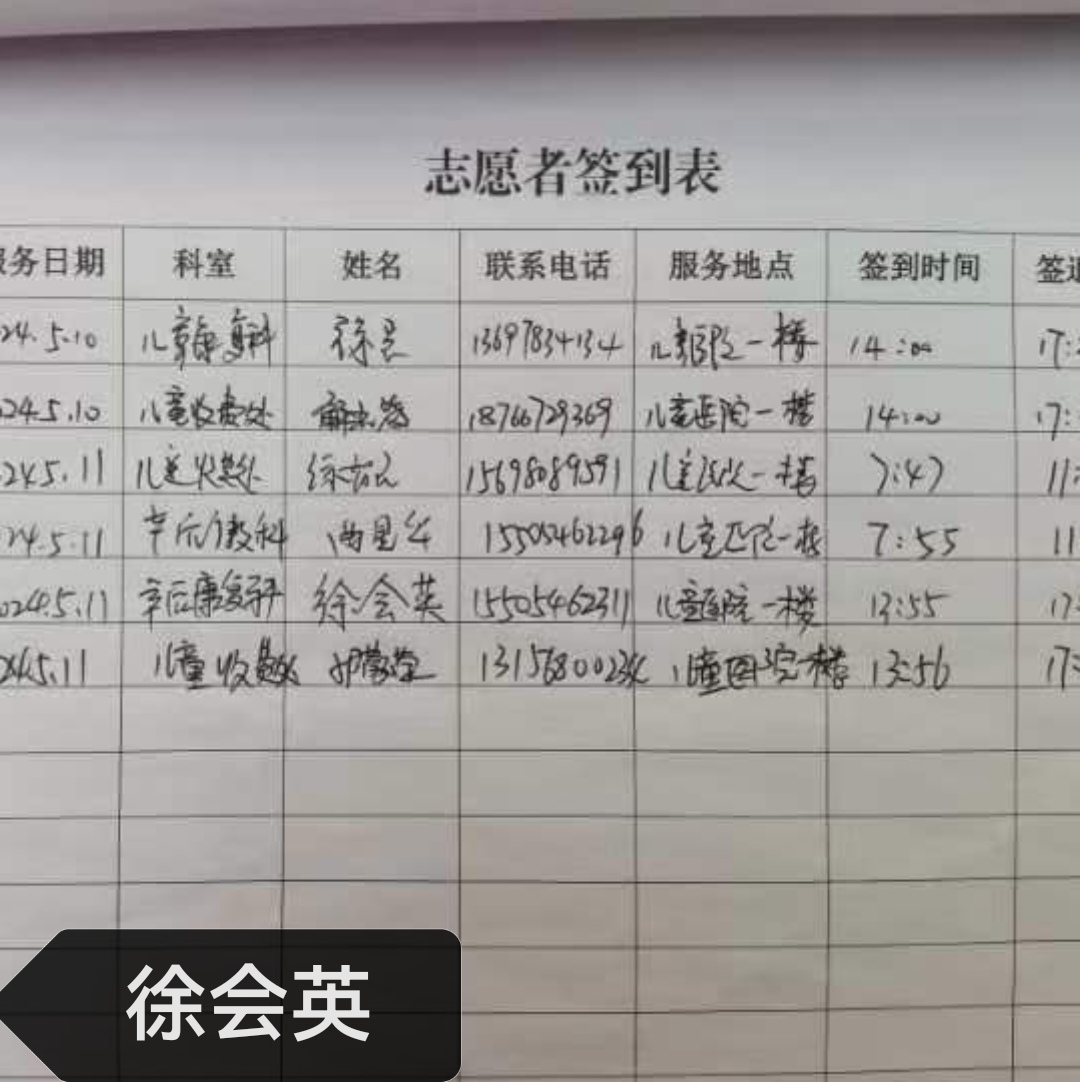 志愿者签到表
服务日期 科室 姓名 联系电话 服务地点 签到时间 签退
24.5.10 儿童康复科 徐 13697834134 儿童医院一楼 14:00 17:
024.5.10 儿童收费处 18766729369 儿童医院一楼 14:00 17:
245.11 儿童收费处 徐 15698089591 儿童医院一楼 7:47 11:
24.5.11 15505462296 儿童医院一楼 7:55 11
024.5.11 康复科 徐会英 15505462311 儿童医院一楼 13:55 17:
245.11 儿童收费处 儿童医院一楼 13:56 17:
徐会英